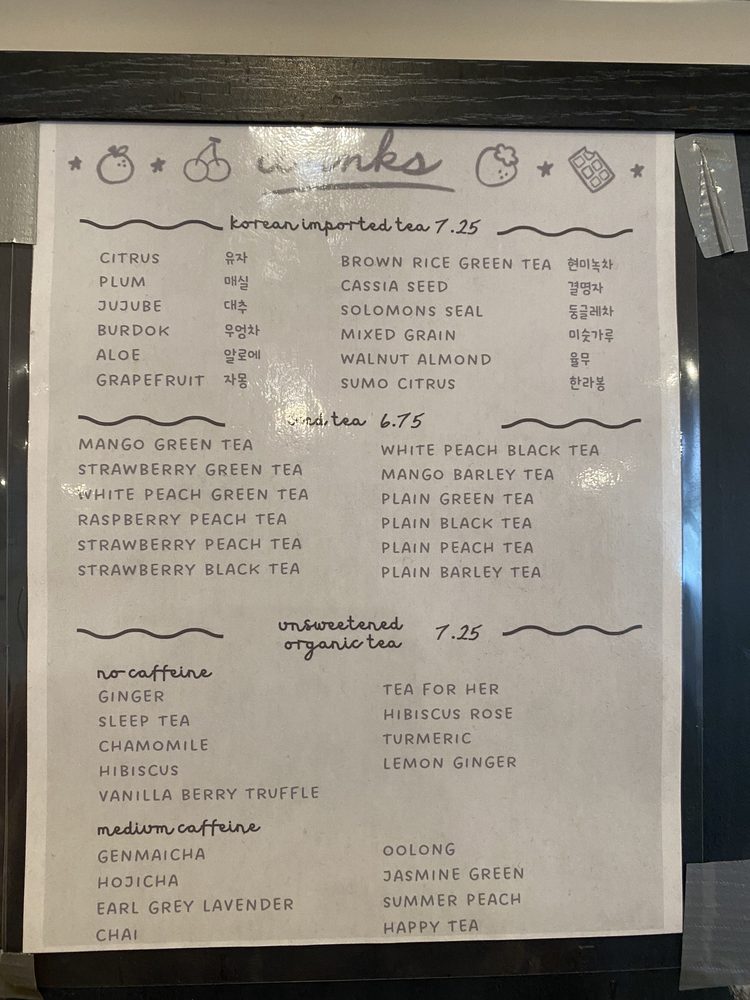 korean imported tea 7.25
CITRUS 유자
PLUM 매실
JUJUBE 대추
BURDOK 우엉차
ALOE 알로에
GRAPEFRUIT 자몽
BROWN RICE GREEN TEA 현미녹차
CASSIA SEED 결명자
SOLOMONS SEAL 둥글레차
MIXED GRAIN 미숫가루
WALNUT ALMOND 율무
SUMO CITRUS 한라봉
tea 6.75
MANGO GREEN TEA
STRAWBERRY GREEN TEA
WHITE PEACH GREEN TEA
RASPBERRY PEACH TEA
STRAWBERRY PEACH TEA
STRAWBERRY BLACK TEA
WHITE PEACH BLACK TEA
MANGO BARLEY TEA
PLAIN GREEN TEA
PLAIN BLACK TEA
PLAIN PEACH TEA
PLAIN BARLEY TEA
unsweetened
organic tea 7.25
no caffeine
GINGER
SLEEP TEA
CHAMOMILE
HIBISCUS
VANILLA BERRY TRUFFLE
TEA FOR HER
HIBISCUS ROSE
TURMERIC
LEMON GINGER
medium caffeine
GENMAICHA
HOJICHA
EARL GREY LAVENDER
CHAI
OOLONG
JASMINE GREEN
SUMMER PEACH
HAPPY TEA